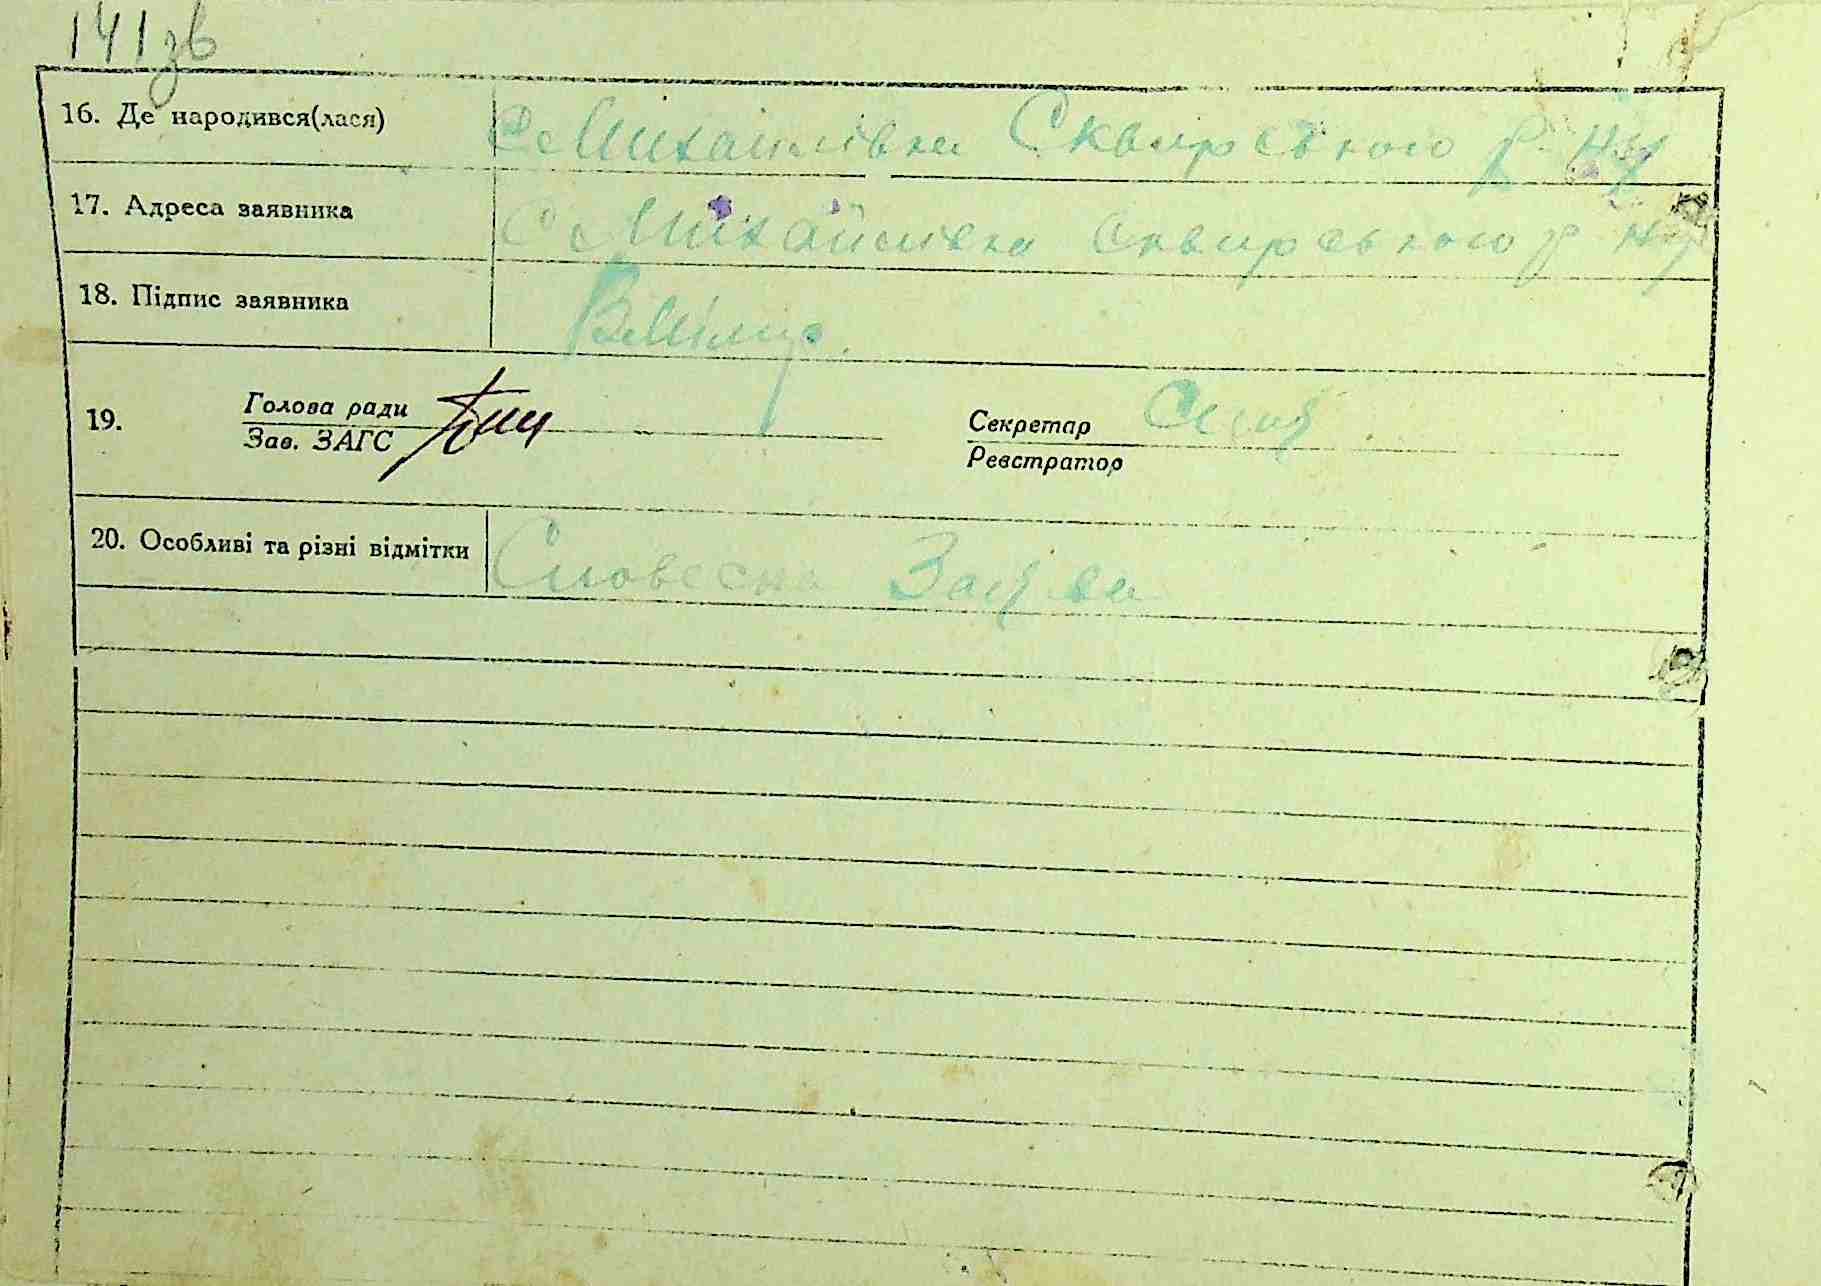 141зв
16. Де народився(лася) с Михайлівка Сквирського р-ну
17. Адреса заявника с Михайлівка Сквирського р-ну
18. Підпис заявника
19. Голова ради
Зав. ЗАГС
Секретар
Реєстратор
20. Особливі та різні відмітки Словесна Заява